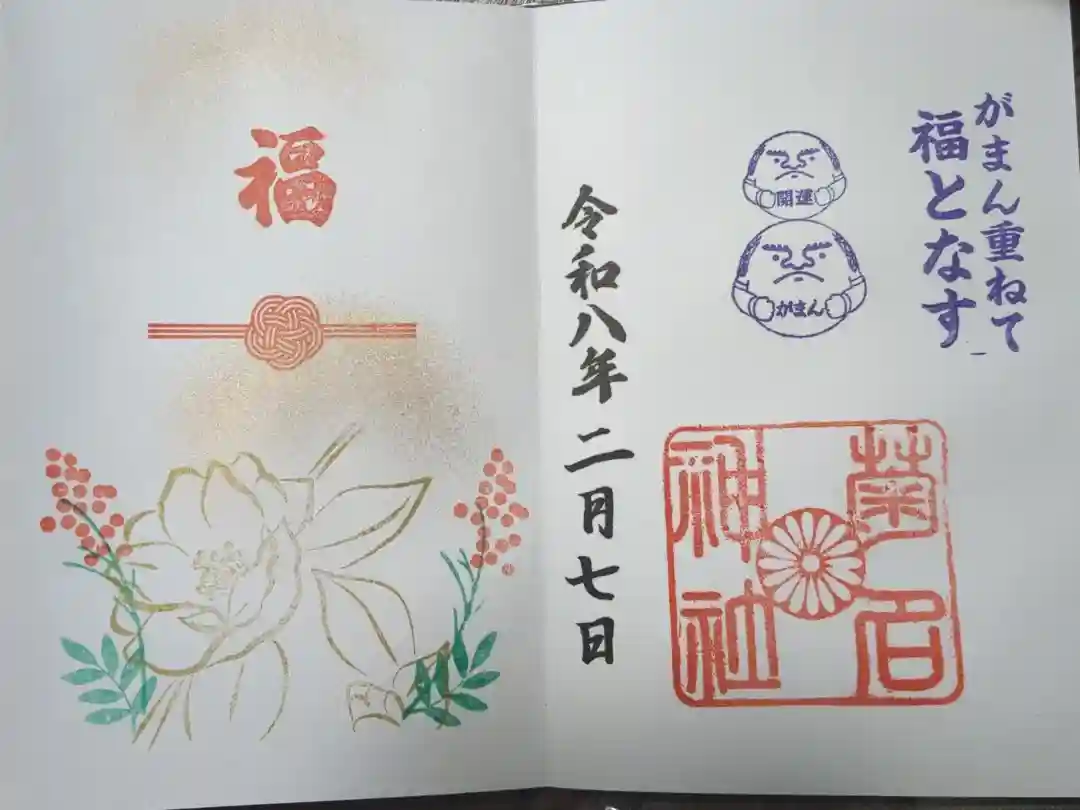 がまん重ねて
福となす
開運
がまん
菊名
神社
令和八年二月七日
福